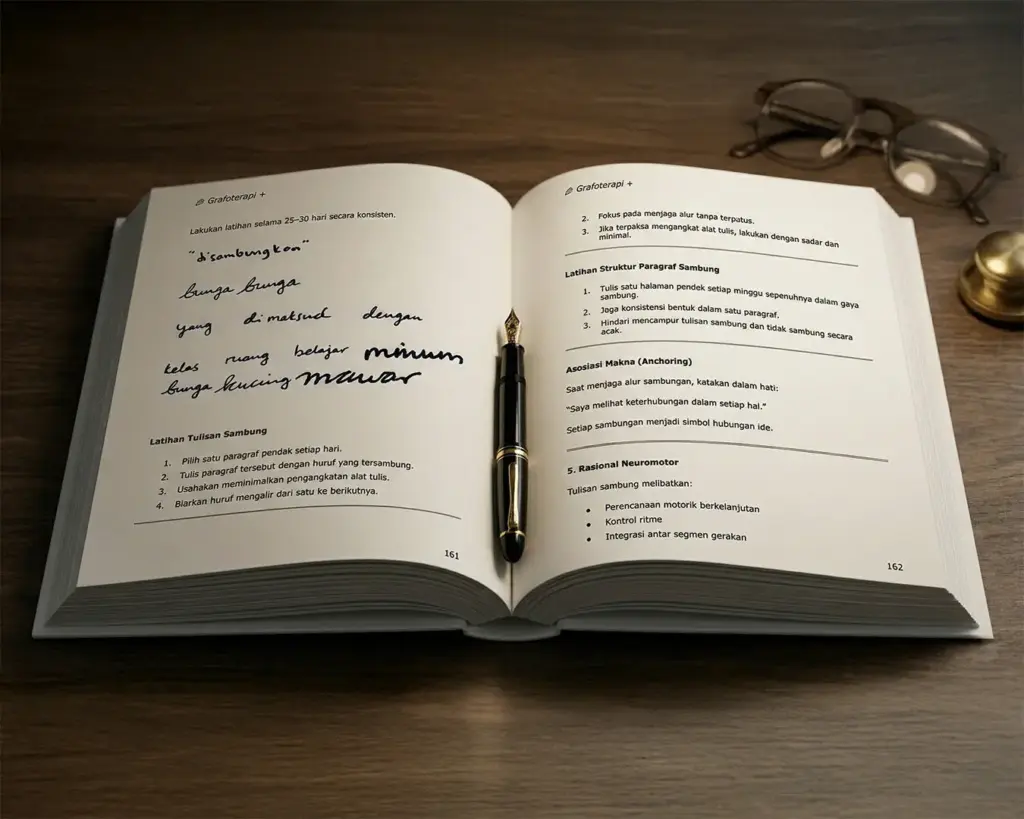 Grafoterapi +
Lakukan latihan selama 25–30 hari secara konsisten.
"disambungkan"
bunga bunga
yang dimaksud dengan
kelas ruang belajar minum
bunga kucing mawar
Latihan Tulisan Sambung
1. Pilih satu paragraf pendak setiap hari.
2. Tulis paragraf tersebut dengan huruf yang tersambung.
3. Usahakan meminimalkan pengangkatan alat tulis.
4. Biarkan huruf mengalir dari satu ke berikutnya.
161
Grafoterapi +
2. Fokus pada menjaga alur tanpa terputus.
3. Jika terpaksa mengangkat alat tulis, lakukan dengan sadar dan
minimal.
Latihan Struktur Paragraf Sambung
1. Tulis satu halaman pendek setiap minggu sepenuhnya dalam gaya
sambung.
2. Jaga konsistensi bentuk dalam satu paragraf.
3. Hindari mencampur tulisan sambung dan tidak sambung secara
acak.
Asosiasi Makna (Anchoring)
Saat menjaga alur sambungan, katakan dalam hati:
"Saya melihat keterhubungan dalam setiap hal."
Setiap sambungan menjadi simbol hubungan ide.
5. Rasional Neuromotor
Tulisan sambung melibatkan:
• Perencanaan motorik berkelanjutan
• Kontrol ritme
• Integrasi antar segmen gerakan
162